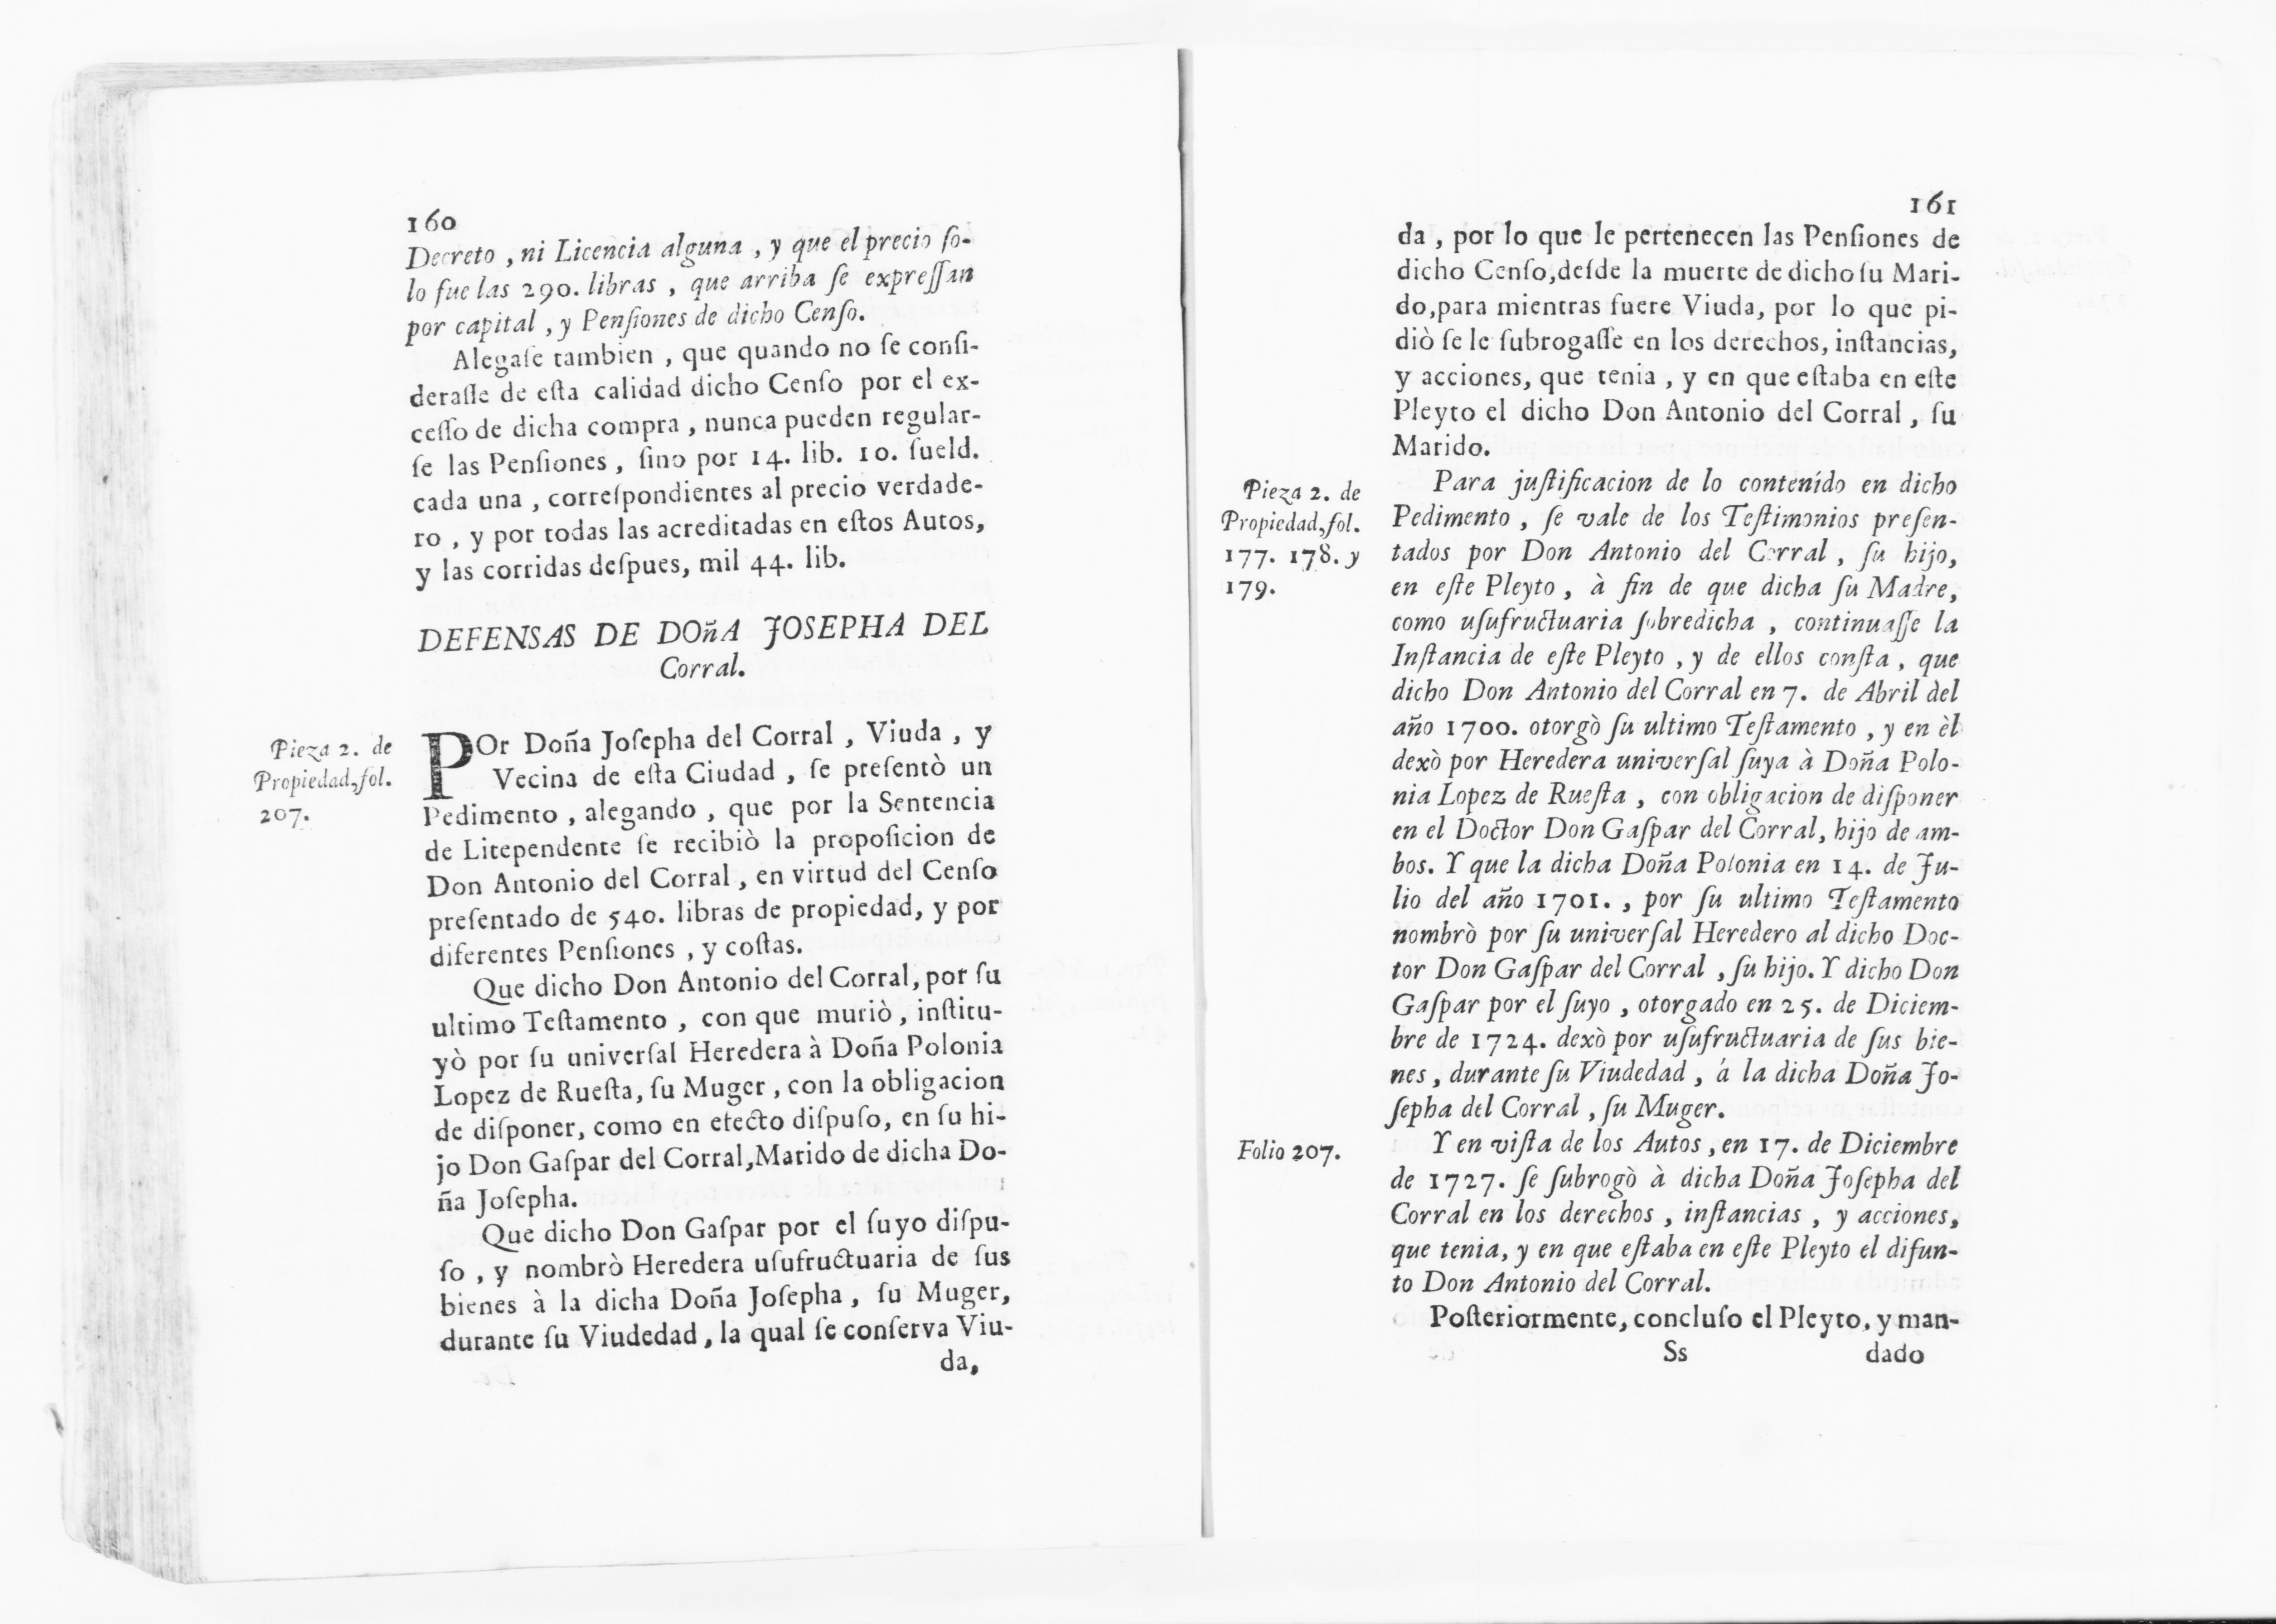 160
Decreto , ni Licencia alguna , y que el precio ſo-
lo fue las 290. libras , que arriba ſe expreſſan
por capital , y Penſiones de dicho Cenſo.
Alegaſe tambien , que quando no ſe conſi-
deraſſe de eſta calidad dicho Cenſo por el ex-
ceſſo de dicha compra , nunca pueden regular-
ſe las Penſiones , ſino por 14. lib. 10. ſueld.
cada una , correſpondientes al precio verdade-
ro , y por todas las acreditadas en eſtos Autos,
y las corridas deſpues, mil 44. lib.
DEFENSAS DE DOñA JOSEPHA DEL
Corral.
Pieza 2. de
Propiedad, fol.
207.
POr Doña Joſepha del Corral , Viuda , y
Vecina de eſta Ciudad , ſe preſentò un
Pedimento , alegando , que por la Sentencia
de Litependente ſe recibiò la propoſicion de
Don Antonio del Corral , en virtud del Cenſo
preſentado de 540. libras de propiedad, y por
diferentes Penſiones , y coſtas.
Que dicho Don Antonio del Corral, por ſu
ultimo Teſtamento , con que muriò , inſtitu-
yò por ſu univerſal Heredera à Doña Polonia
Lopez de Rueſta, ſu Muger , con la obligacion
de diſponer, como en efecto diſpuſo, en ſu hi-
jo Don Gaſpar del Corral, Marido de dicha Do-
ña Joſepha.
Que dicho Don Gaſpar por el ſuyo diſpu-
ſo , y nombrò Heredera uſufructuaria de ſus
bienes à la dicha Doña Joſepha , ſu Muger,
durante ſu Viudedad , la qual ſe conſerva Viu-
da,
161
da , por lo que le pertenecen las Penſiones de
dicho Cenſo, deſde la muerte de dicho ſu Mari-
do, para mientras fuere Viuda, por lo que pi-
diò ſe le ſubrogaſſe en los derechos, inſtancias,
y acciones, que tenia , y en que eſtaba en eſte
Pleyto el dicho Don Antonio del Corral , ſu
Marido.
Pieza 2. de
Propiedad, fol.
177. 178. y
179.
Para juſtificacion de lo contenído en dicho
Pedimento , ſe vale de los Teſtimonios preſen-
tados por Don Antonio del Corral , ſu hijo,
en eſte Pleyto , à fin de que dicha ſu Madre,
como uſufructuaria ſobredicha , continuaſſe la
Inſtancia de eſte Pleyto , y de ellos conſta , que
dicho Don Antonio del Corral en 7. de Abril del
año 1700. otorgò ſu ultimo Teſtamento , y en èl
dexò por Heredera univerſal ſuya à Doña Polo-
nia Lopez de Rueſta , con obligacion de diſponer
en el Doctor Don Gaſpar del Corral, hijo de am-
bos. Y que la dicha Doña Polonia en 14. de Ju-
lio del año 1701. , por ſu ultimo Teſtamento
nombrò por ſu univerſal Heredero al dicho Doc-
tor Don Gaſpar del Corral , ſu hijo. Y dicho Don
Gaſpar por el ſuyo , otorgado en 25. de Diciem-
bre de 1724. dexò por uſufructuaria de ſus bie-
nes , durante ſu Viudedad , á la dicha Doña Jo-
ſepha del Corral , ſu Muger.
Folio 207.
Y en viſta de los Autos , en 17. de Diciembre
de 1727. ſe ſubrogò à dicha Doña Joſepha del
Corral en los derechos , inſtancias , y acciones,
que tenia, y en que eſtaba en eſte Pleyto el difun-
to Don Antonio del Corral.
Poſteriormente, concluſo el Pleyto, y man-
Ss dado